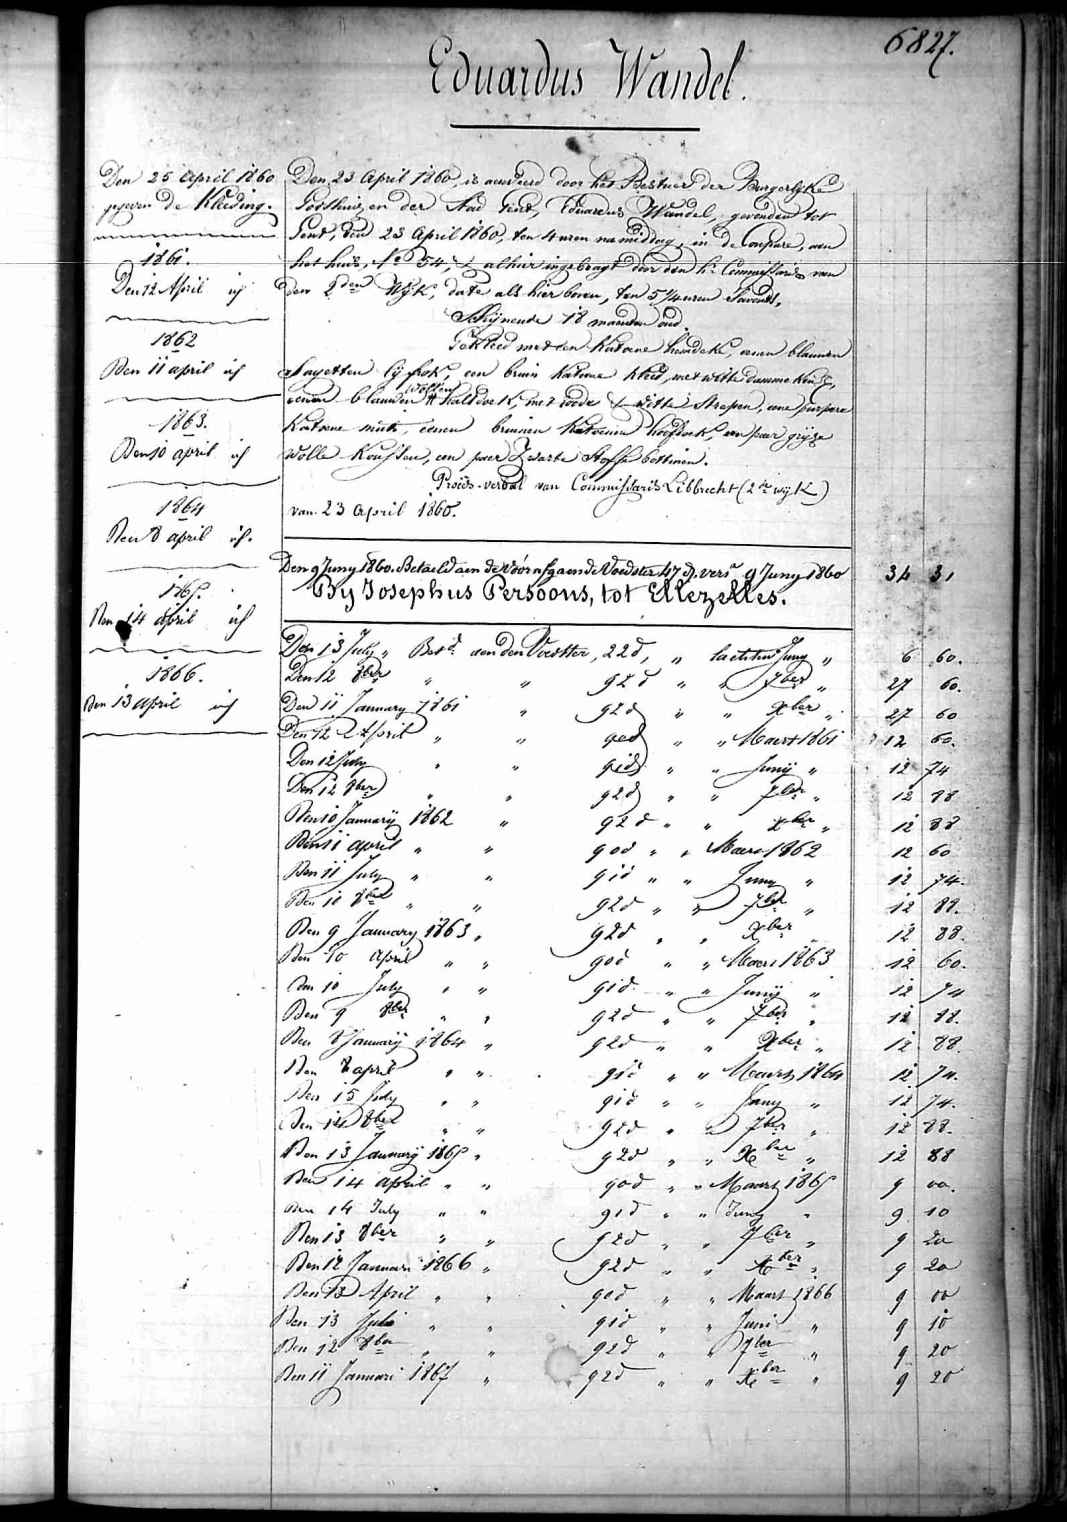 6827.
Eduardus Wandel.
Den 25 April 1860
gegeven de Kleeding.
1861.
Den 12 April id
1862
Den 11 april id
1863.
Den 10 april id
1864
Den 8 april id.
1865.
Den 14 april id
1866.
Den 13 april id
Den 23 April 1860, is door het Bestuer der Burgerlyke
Godshuizen der Stad Gent, Eduardus Wandel, gevonden tot
Gent, den 23 April 1860, ten 4 uren namiddag, in de Coupure, aen
het huis, No 54, & alhier ingebragt door den hr Commissaris van
den 2den Wyk, date als hier boven, ten 5 1/4 uren 's avonds,
Schijnende 18 maenden oud.
Gekleed met een Katoene hemdeke, eenen blauwen
Sayetten lyfrok, een bruin katoene kleed, met witte
eenen blauwen wollen halsdoek, met roode & witte Strepen, eene purpere
Katoene muts, eenen bruinen Katoenen hoofdoek, een paer gryze
Wolle Kousen, een paer Zwarte Stoffe bottinen.
Procès-verbal van Commissaris Libbrecht (2de wyk)
van 23 April 1860.
Den 9 Juny 1860. Betaeld aen de Voorafgaende Voedster 47 d. vers 9 Juny 1860 34 31
By Josephus Persoons, tot Ellezelles.
Den 13 July " Betd aen den Voedster, 22d, " laetsten Juny " 6 60.
Den 12 8ber " " 92d " " 7ber " 27 60.
Den 11 January 1861 " 92d " " Xber " 27 60
Den 12 April " " 90d " " Maert 1861 12 60.
Den 12 July " " 91d " " Juny " 12 74
Den 12 8ber " " 92d " " 7ber " 12 88
Den 10 January 1862 " 92d " " Xber " 12 88
Den 11 april " " 90d " " Maert 1862 12 60
Den 11 July " " 91d " " Juny " 12 74.
Den 10 8ber " " 92d " " 7ber " 12 88.
Den 9 January 1863 " 92d " " Xber " 12 88.
Den 10 April " " 90d " " Maert 1863 12 60.
Den 10 July " " 91d " " Juny " 12 74
Den 9 8ber " " 92d " " 7ber " 12 88.
Den 8 January 1864 " 92d " " Xber " 12 88.
Den 8 april " " 91d " " Maert 1864 12 74.
Den 15 July " " 91d " " Juny " 12 74.
Den 14 8ber " " 92d " " 7ber " 12 88.
Den 13 January 1865 " 92d " " Xber " 12 88
Den 14 april " " 90d " " Maert 1865 9 00.
Den 14 July " " 91d " " Juny " 9 10
Den 13 8ber " " 92d " " 7ber " 9 20
Den 12 Januari 1866 " 92d " " Xber " 9 20
Den 13 April " " 90d " " Maart 1866 9 00
Den 13 Julie " " 91d " " Juni " 9 10
Den 12 8ber " " 92d " " 7ber " 9 20
Den 11 Januari 1867 " 92d " " Xber " 9 20